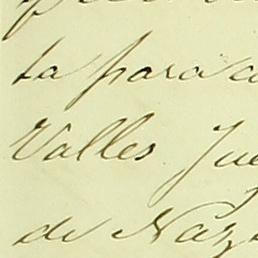 ta para
Valles Jue
de Naz